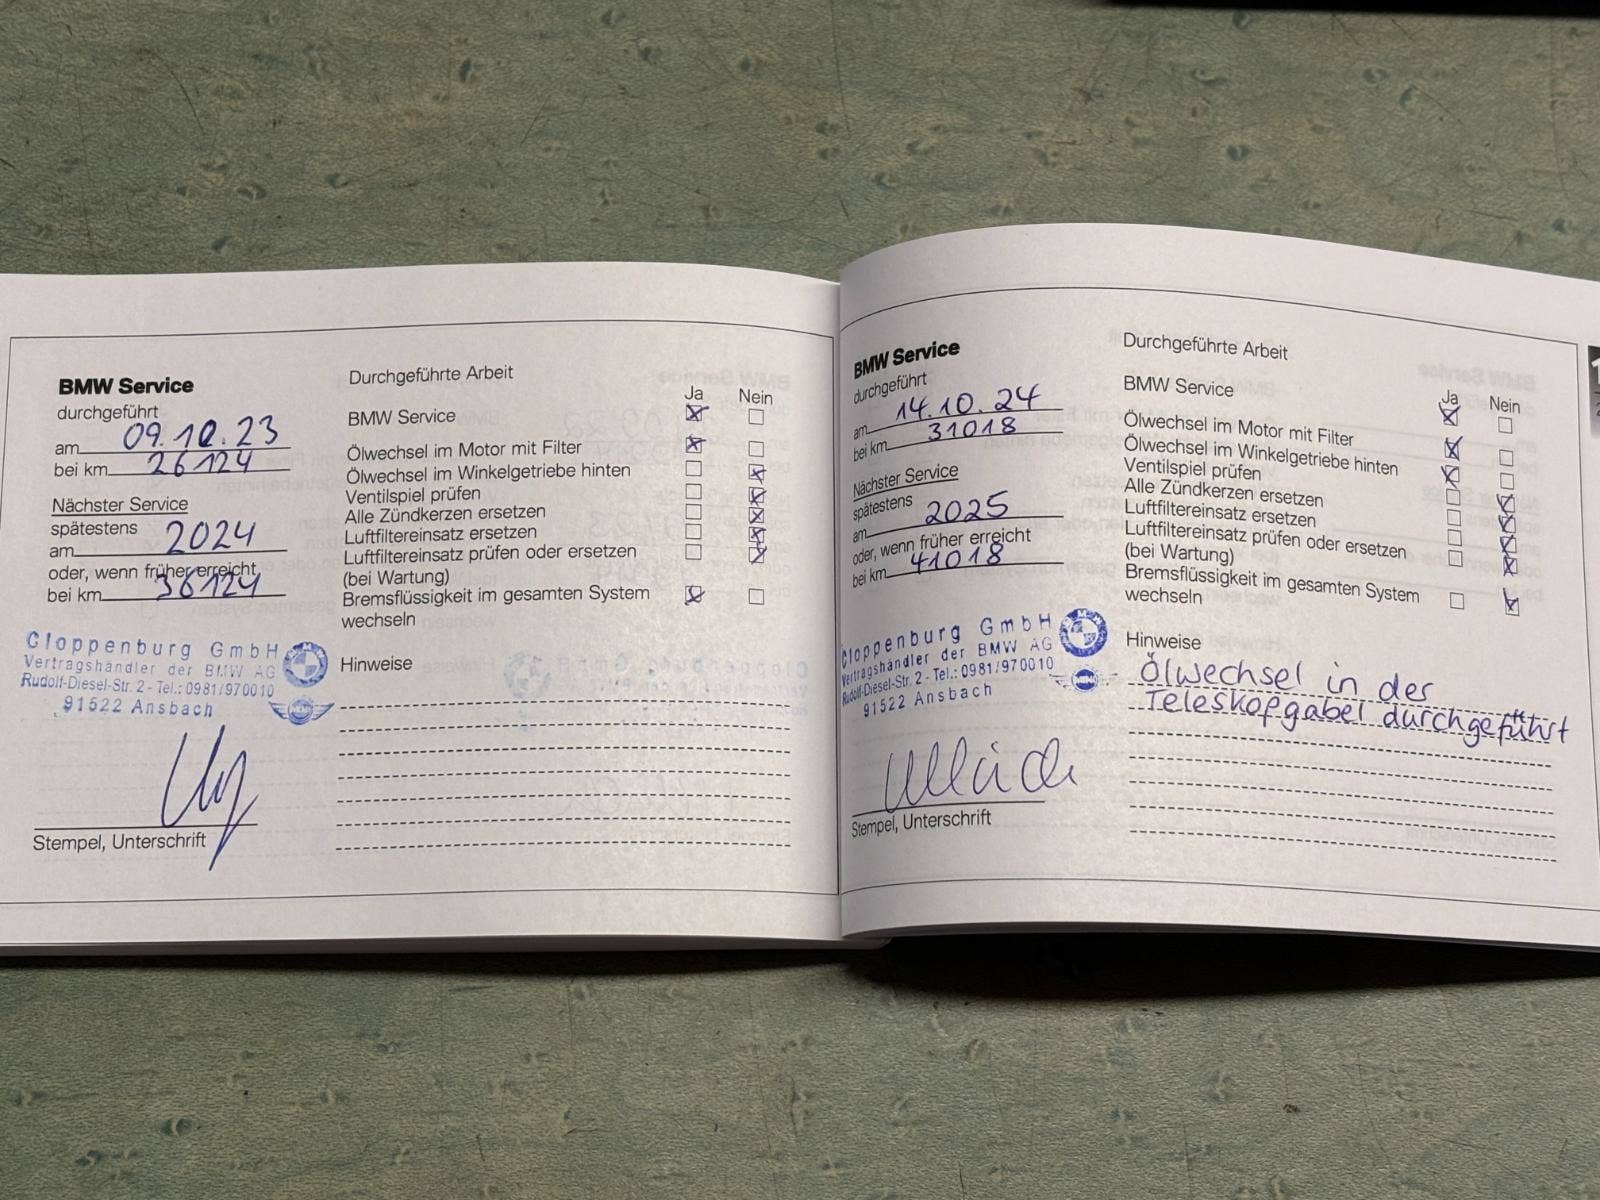 BMW Service
durchgeführt
am 09.10.23
bei km 26124
Nächster Service
spätestens
am 2024
oder, wenn früher erreicht
bei km 36124
Cloppenburg GmbH
Vertragshändler der BMW AG
Rudolf-Diesel-Str. 2 - Tel.: 0981/970010
91522 Ansbach
Stempel, Unterschrift
Durchgeführte Arbeit
Ja Nein
BMW Service
Ölwechsel im Motor mit Filter
Ölwechsel im Winkelgetriebe hinten
Ventilspiel prüfen
Alle Zündkerzen ersetzen
Luftfiltereinsatz ersetzen
Luftfiltereinsatz prüfen oder ersetzen
(bei Wartung)
Bremsflüssigkeit im gesamten System
wechseln
Hinweise
BMW Service
durchgeführt
am 14.10.24
bei km 31018
Nächster Service
spätestens
am 2025
oder, wenn früher erreicht
bei km 41018
Cloppenburg GmbH
Vertragshändler der BMW AG
Rudolf-Diesel-Str. 2 - Tel.: 0981/970010
91522 Ansbach
Stempel, Unterschrift
Durchgeführte Arbeit
Ja Nein
BMW Service
Ölwechsel im Motor mit Filter
Ölwechsel im Winkelgetriebe hinten
Ventilspiel prüfen
Alle Zündkerzen ersetzen
Luftfiltereinsatz ersetzen
Luftfiltereinsatz prüfen oder ersetzen
(bei Wartung)
Bremsflüssigkeit im gesamten System
wechseln
Hinweise
Ölwechsel in der
Teleskopgabel durchgeführt